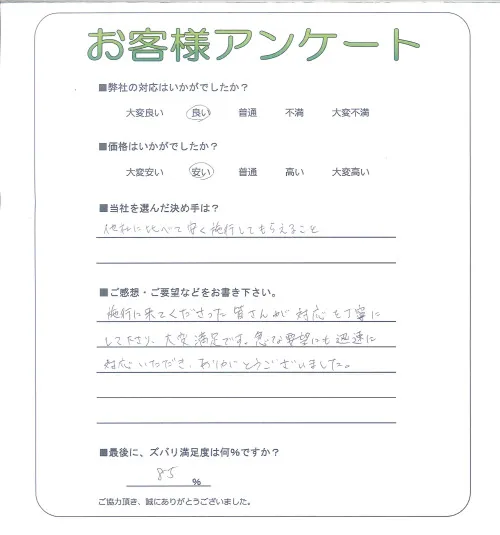 お客様アンケート
■弊社の対応はいかがでしたか？
大変良い 良い 普通 不満 大変不満
■価格はいかがでしたか？
大変安い 安い 普通 高い 大変高い
■当社を選んだ決め手は？
他社に比べて安く施行してもらえること
■ご感想・ご要望などをお書き下さい。
施行に来てくださった皆さんが対応を丁寧に
して下さり、大変満足です。急な要望にも迅速に
対応いただき、ありがとうございました。
■最後に、ズバリ満足度は何％ですか？
85 ％
ご協力頂き、誠にありがとうございました。